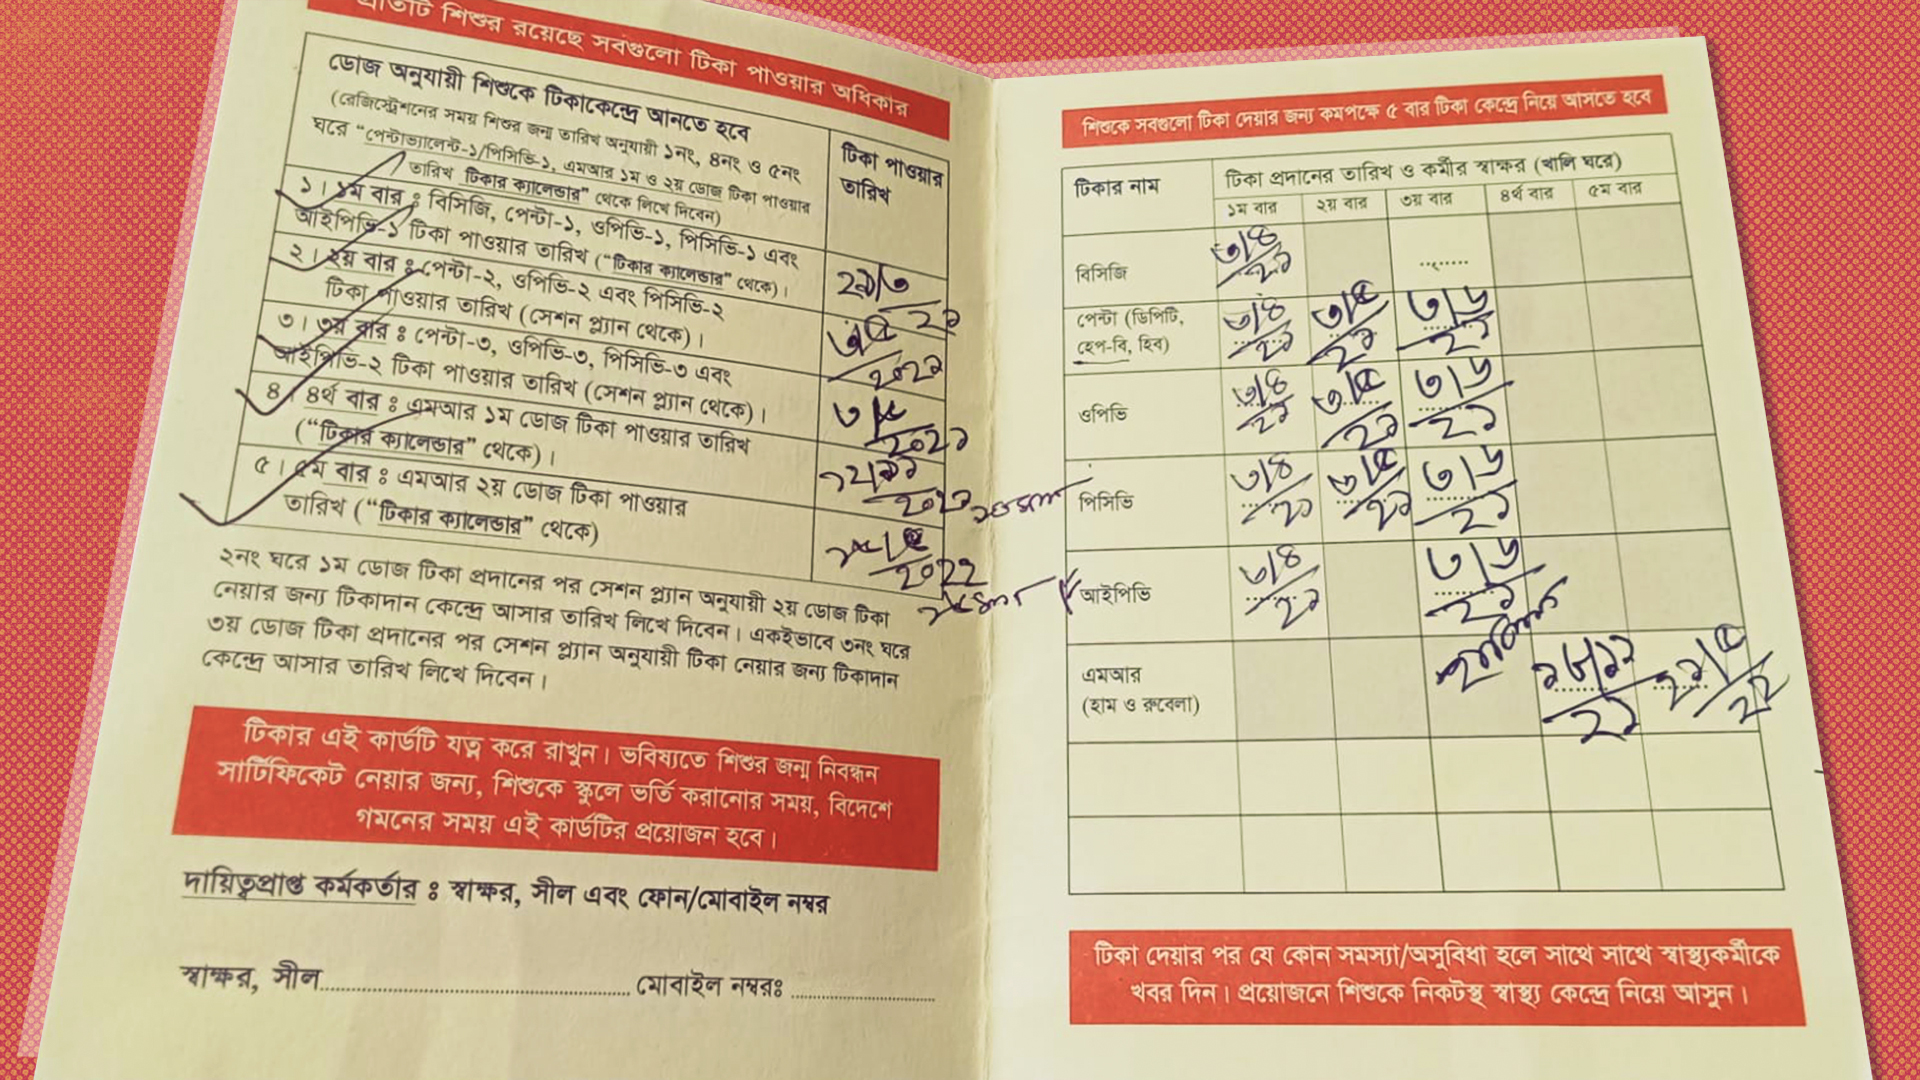 প্রতিটি শিশুর রয়েছে সবগুলো টিকা পাওয়ার অধিকার
ডোজ অনুযায়ী শিশুকে টিকাকেন্দ্রে আনতে হবে
(রেজিস্ট্রেশনের সময় শিশুর জন্ম তারিখ অনুযায়ী ১নং, ৪নং ও ৫নং
ঘরে “পেন্টাভ্যালেন্ট-১/পিসিভি-১, এমআর ১ম ও ২য় ডোজ টিকা পাওয়ার
তারিখ টিকার ক্যালেন্ডার” থেকে লিখে দিবেন)
টিকা পাওয়ার
তারিখ
১। ১ম বার : বিসিজি, পেন্টা-১, ওপিভি-১, পিসিভি-১ এবং
আইপিভি-১ টিকা পাওয়ার তারিখ (“টিকার ক্যালেন্ডার” থেকে)।
২। ২য় বার : পেন্টা-২, ওপিভি-২ এবং পিসিভি-২
টিকা পাওয়ার তারিখ (সেশন প্ল্যান থেকে)।
৩। ৩য় বার : পেন্টা-৩, ওপিভি-৩, পিসিভি-৩ এবং
আইপিভি-২ টিকা পাওয়ার তারিখ (সেশন প্ল্যান থেকে)।
২০২১
৪। ৪র্থ বার : এমআর ১ম ডোজ টিকা পাওয়ার তারিখ
(“টিকার ক্যালেন্ডার” থেকে)।
৫। ৫ম বার : এমআর ২য় ডোজ টিকা পাওয়ার
তারিখ (“টিকার ক্যালেন্ডার” থেকে)
২০২২
২নং ঘরে ১ম ডোজ টিকা প্রদানের পর সেশন প্ল্যান অনুযায়ী ২য় ডোজ টিকা
নেয়ার জন্য টিকাদান কেন্দ্রে আসার তারিখ লিখে দিবেন। একইভাবে ৩নং ঘরে
৩য় ডোজ টিকা প্রদানের পর সেশন প্ল্যান অনুযায়ী টিকা নেয়ার জন্য টিকাদান
কেন্দ্রে আসার তারিখ লিখে দিবেন।
টিকার এই কার্ডটি যত্ন করে রাখুন। ভবিষ্যতে শিশুর জন্ম নিবন্ধন
সার্টিফিকেট নেয়ার জন্য, শিশুকে স্কুলে ভর্তি করানোর সময়, বিদেশে
গমনের সময় এই কার্ডটির প্রয়োজন হবে।
দায়িত্বপ্রাপ্ত কর্মকর্তার : স্বাক্ষর, সীল এবং ফোন/মোবাইল নম্বর
স্বাক্ষর, সীল............................ মোবাইল নম্বরঃ ............................
শিশুকে সবগুলো টিকা দেয়ার জন্য কমপক্ষে ৫ বার টিকা কেন্দ্রে নিয়ে আসতে হবে
টিকার নাম
টিকা প্রদানের তারিখ ও কর্মীর স্বাক্ষর (খালি ঘরে)
১ম বার ২য় বার ৩য় বার ৪র্থ বার ৫ম বার
বিসিজি ৩/৪/২১
পেন্টা (ডিপিটি,
হেপ-বি, হিব) ৩/৪/২১ ৩/৫/২১ ৩/৬/২১
ওপিভি ৩/৪/২১ ৩/৫/২১ ৩/৬/২১
পিসিভি ৩/৪/২১ ৩/৫/২১ ৩/৬/২১
আইপিভি ৩/৪/২১ ৩/৬/২১
এমআর
(হাম ও রুবেলা)
টিকা দেয়ার পর যে কোন সমস্যা/অসুবিধা হলে সাথে সাথে স্বাস্থ্যকর্মীকে
খবর দিন। প্রয়োজনে শিশুকে নিকটস্থ স্বাস্থ্য কেন্দ্রে নিয়ে আসুন।